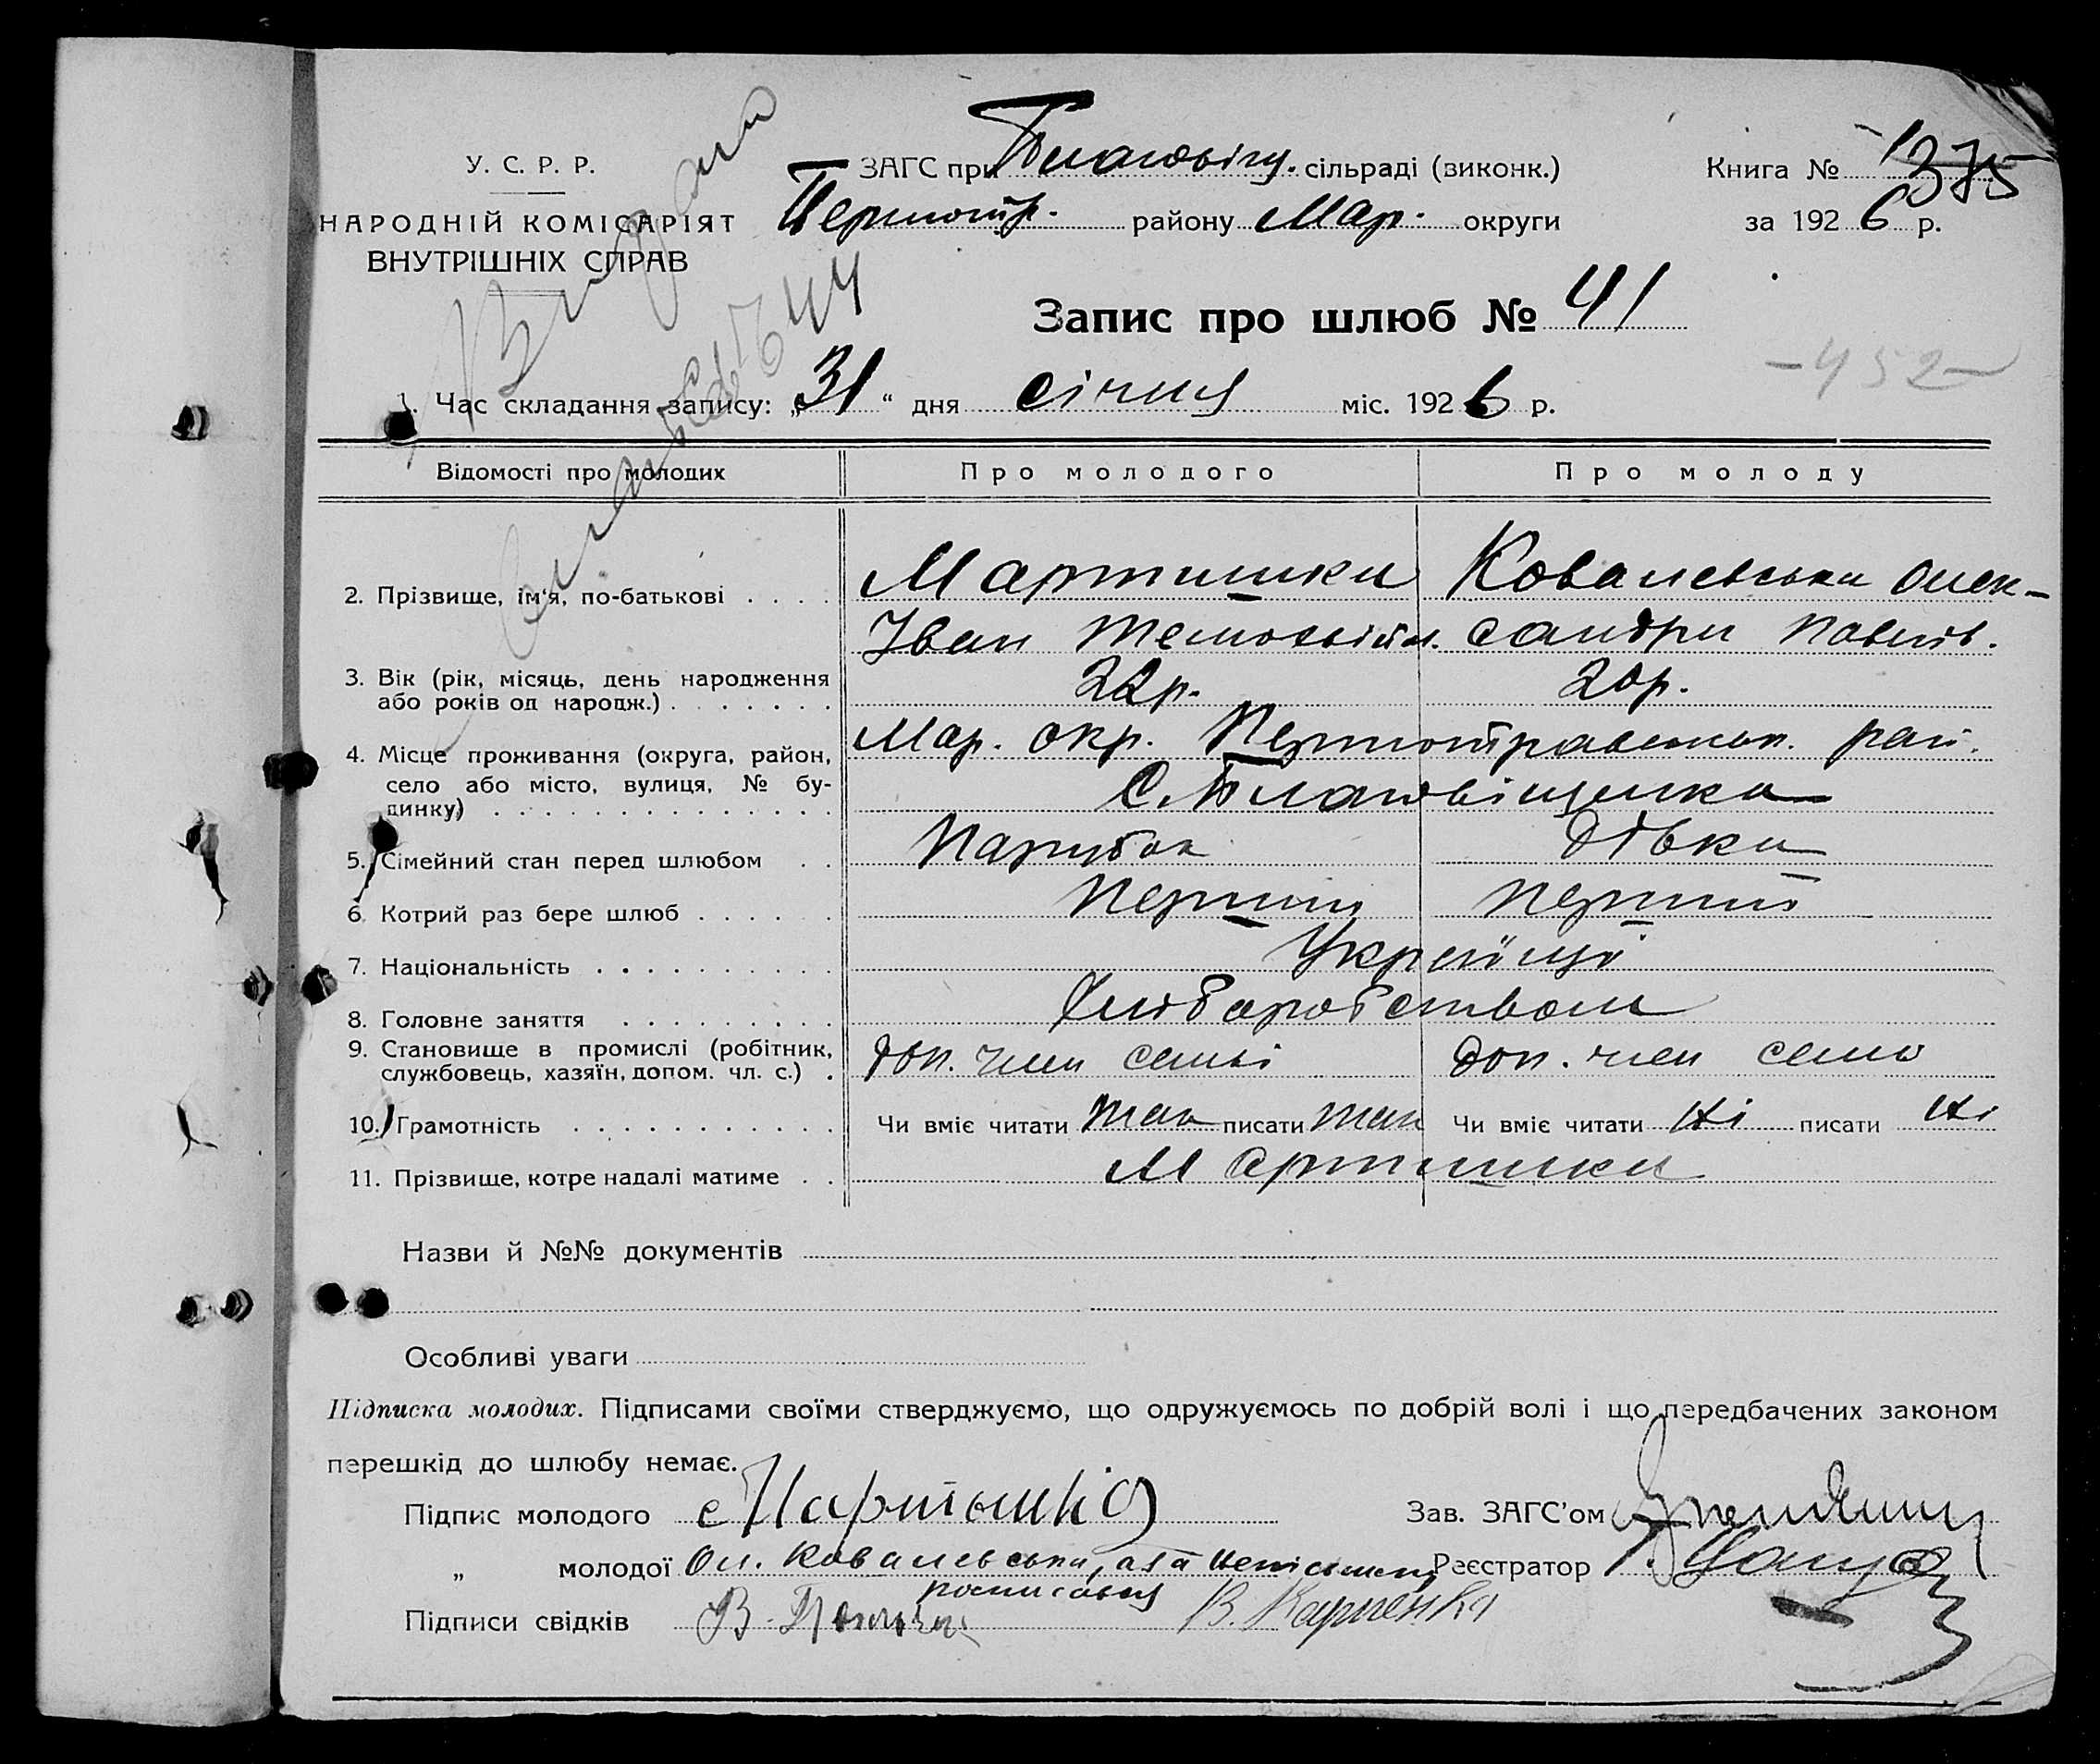 У. С. Р. Р.
НАРОДНІЙ КОМІСАРІЯТ
ВНУТРІШНІХ СПРАВ
ЗАГС при Благовіщ. сільраді (виконк.)
Першотр. району Мар. округи
Книга № 1375
за 1926 р.
Запис про шлюб № 41
-452-
1. Час складання запису: „31" дня січня міс. 1926 р.
Відомості про молодих Про молодого Про молоду
2. Прізвище, ім'я, по-батькові . . . . Мартишки Ковалевська Олек-
Іван сандри Павлів.
3. Вік (рік, місяць, день народження
або років од народж.) . . . . . . . 22р. 20р.
4. Місце проживання (округа, район, Мар. окр. Першотравенськ. рай.
село або місто, вулиця, № бу- С. Благовіщенка
динку) . . . . . . . . . . . . . .
5. Сімейний стан перед шлюбом . . Парубок Дівка
6. Котрий раз бере шлюб . . . . . . Перший Перший
7. Національність . . . . . . . . . . Україці
8. Головне заняття . . . . . . . . . Хлібаробством
9. Становище в промислі (робітник,
службовець, хазяїн, допом. чл. с.) . доп. член семьі доп. член
10. Грамотність . . . . . . . . . . . Чи вміє читати так писати так Чи вміє читати ні писати ні
11. Прізвище, котре надалі матиме . . Мартишки
Назви й №№ документів
Особливі уваги
Підписка молодих. Підписами своїми стверджуємо, що одружуємось по добрій волі і що передбачених законом
перешкід до шлюбу немає.
Підпис молодого Зав. ЗАГС'ом
„ молодої Ол. Ковалевська, а за Реєстратор
Підписи свідків В. В. Карпенко